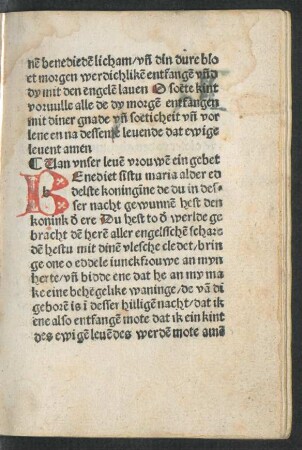 nē benediedē licham/ vñ din dure blo
et morgen werdichlikē entfangē vñ đ
dy mit den engelē lauen O soete kint
voruulle alle de dy morgē entfangen
mit diner gnade vñ soeticheit vñ vor
lene en na dessenſe leuende dat ewige
leuent amen
¶ Uan vnser leuē vrouwē ein gebet
BEnediet sistu maria alder ed
delste koningine de du in des-
ser nacht gewunnē hest den
konink đ ere Du hest to đ werlde ge
bracht dē herē aller engelsschē schars
dē hestu mit dinē vlesche cledet/ brin
ge one o eddele iunckfrouwe an myn
herte/ vñ bidde ene dat he an my ma
ke eine behegelike waninge/ de vā di
geborē is i desser hilligē nacht/ dat ik
ene also entfangē mote dat ik ein kint
des ewigē leuēdes werdē mote amē